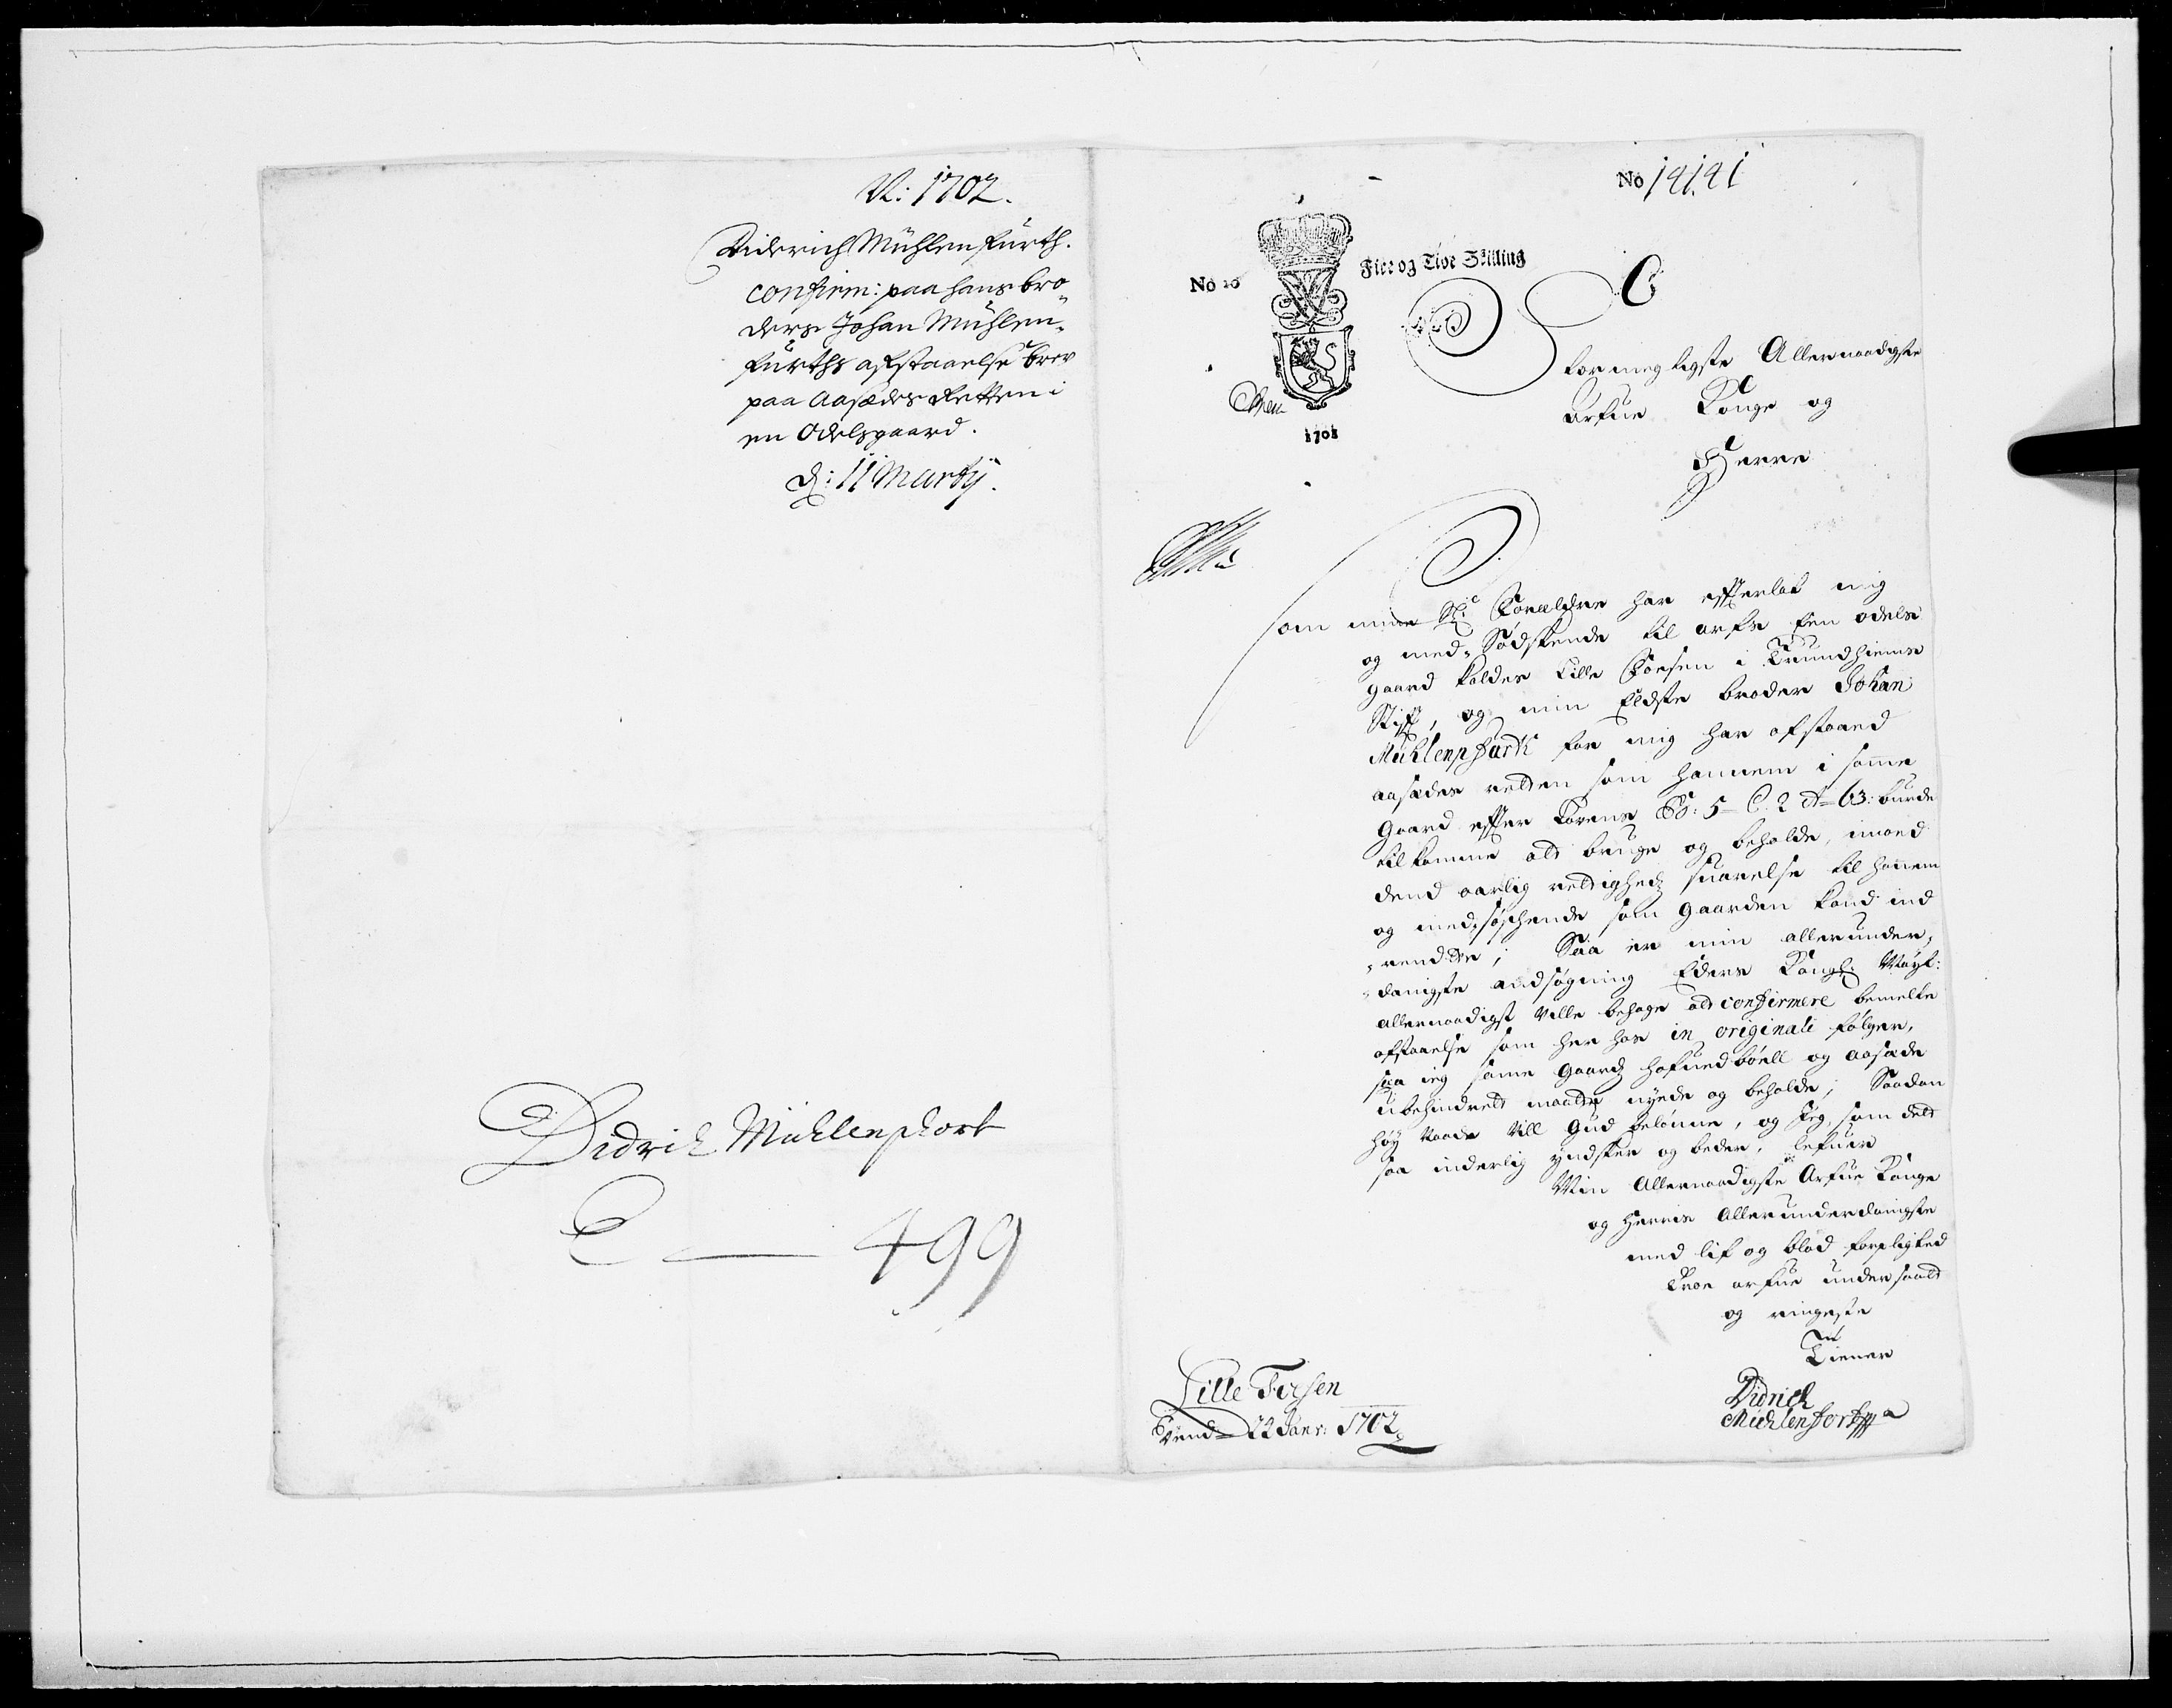 N: 1702.
Diderich Mühlenfürth.
confirm: paa hans bro-
ders Johan Mühlen-
fürths afstaaelse brev
paa Aasædes Retten i
en Odelsgaard.
d: 11 Martij.
Didrich Mühlenphort
C — 499
No 14141
No 10
Fire og Tive Skilling
1701
C
Stormegtigste Allernaadigste
Arfue Konge og
Herre
Som mine Sl: Forældre har efterlat mig
og med-Sødskende til arfs Een odels
gaard kaldes Lille Forsen i Trundhiems
Stift, og min Eldste broder Johan
Mühlenphurt for mig har afstaaed
aasædes retten som hannem i samme
Gaard efter Lovens B: 5 C: 2 A= 63: burde
tilkomme att bruge og beholde, imod
dend aarlig rettigheds suarelse til hannem
og med-søschende som gaarden kand ind
rendere; Saa er min allerunder-
danigste andsøgning Eders Kongl: Mayt:
allernaadigst ville behage att confirmere bemelte
afstaaelse som her hos in originali følger,
saa ieg samme Gaards hofuedbøell og aasæde
ubehindrett maatte nyde og beholde; Saadan
høy Naade vill Gud belønne, og Jeg, som dett
saa inderlig yndsker og beder, lefuer
Min Allernaadigste Arfue Konge
og Herris Allerunderdanigste
med lif og blod forpligted
Troe arfue undersaatt
og ringeste
Tiener
Didrich
Mühlenfort
Lille Forsen
22 Janr: 1702